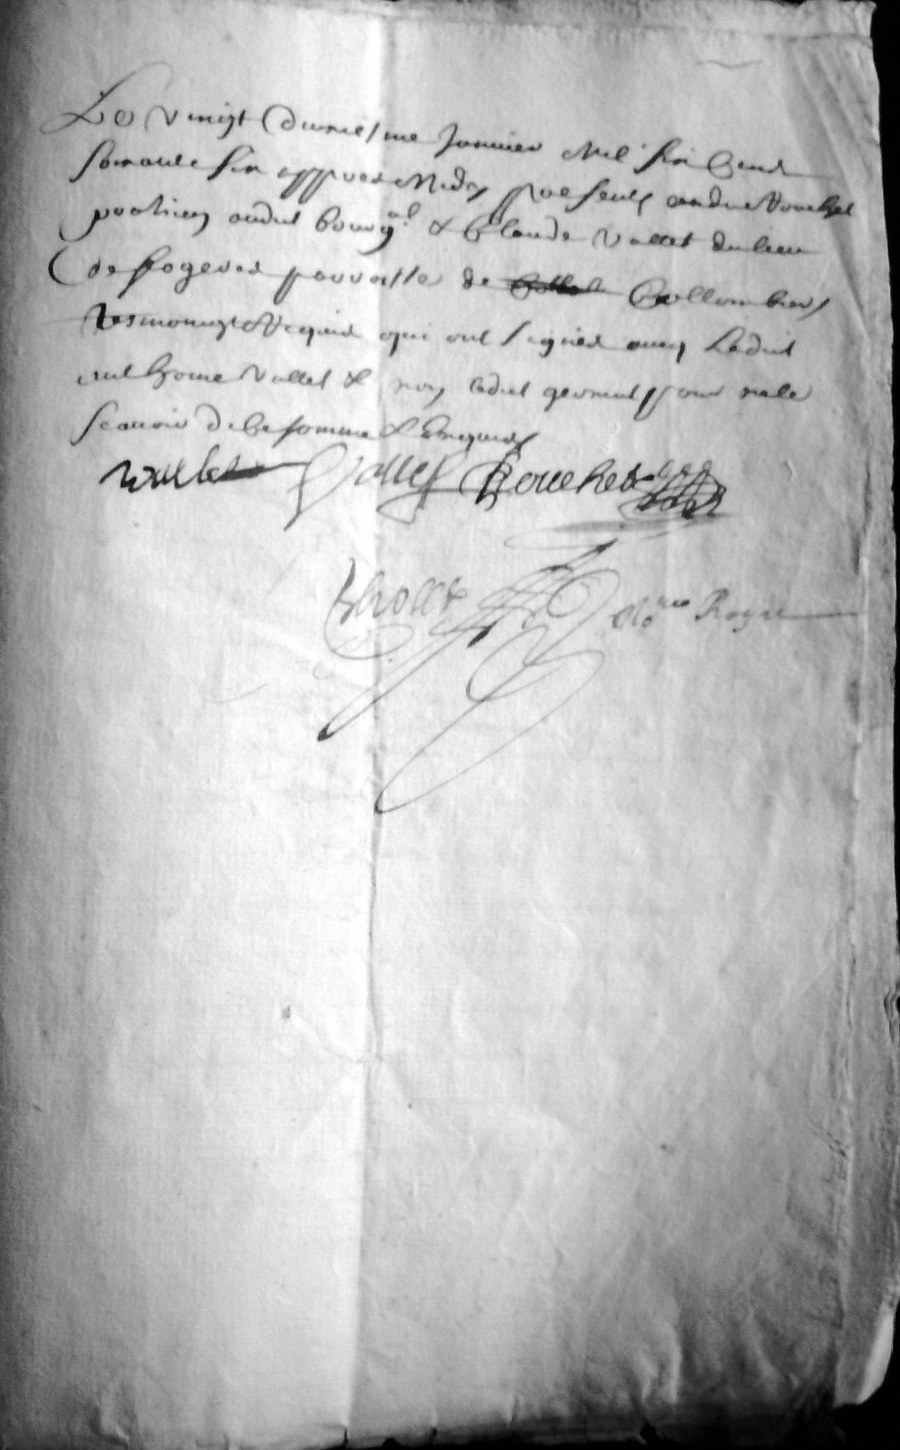 Le vingt deuxiesme Janvier Mil six cens
soixante six appres Midy presents andre Bouchet
praticien audit bourg & Claude Vallet du lieu
de fogeres parroisse de Collombiers
tesmoingt Requis qui ont signes avec ledit
anthoine Vallet & non ledit pour ne le
scavoir de ce somme & Enquis
Vallet Bouchet
Chollet No.re Royal